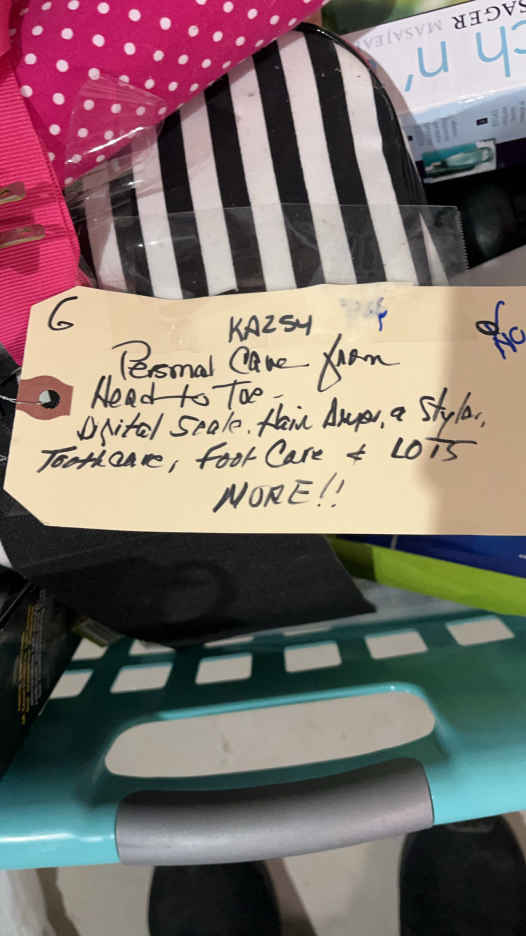 SAGER MASAJEA
ch n'
G
KAZSY
Personal Care from
Head to Toe -
Digital Scale, Hair Dryer, & Styler,
Toothcare, Foot Care & LOTS
MORE!!